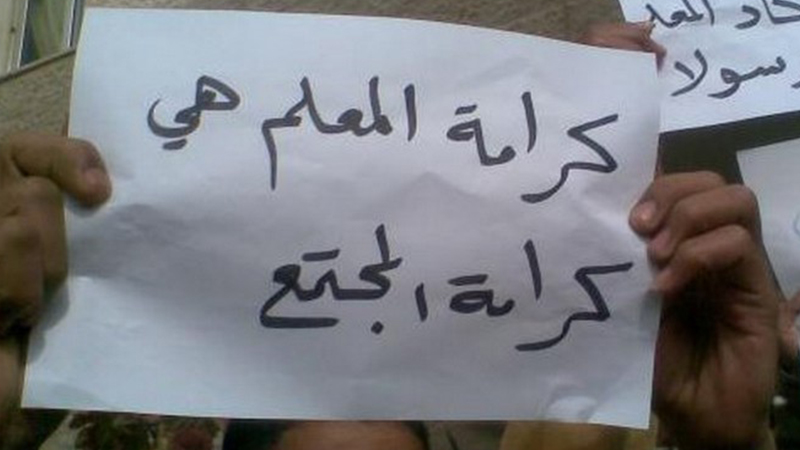 كرامة المعلم هي
كرامة المجتمع
المعلم
رسولا